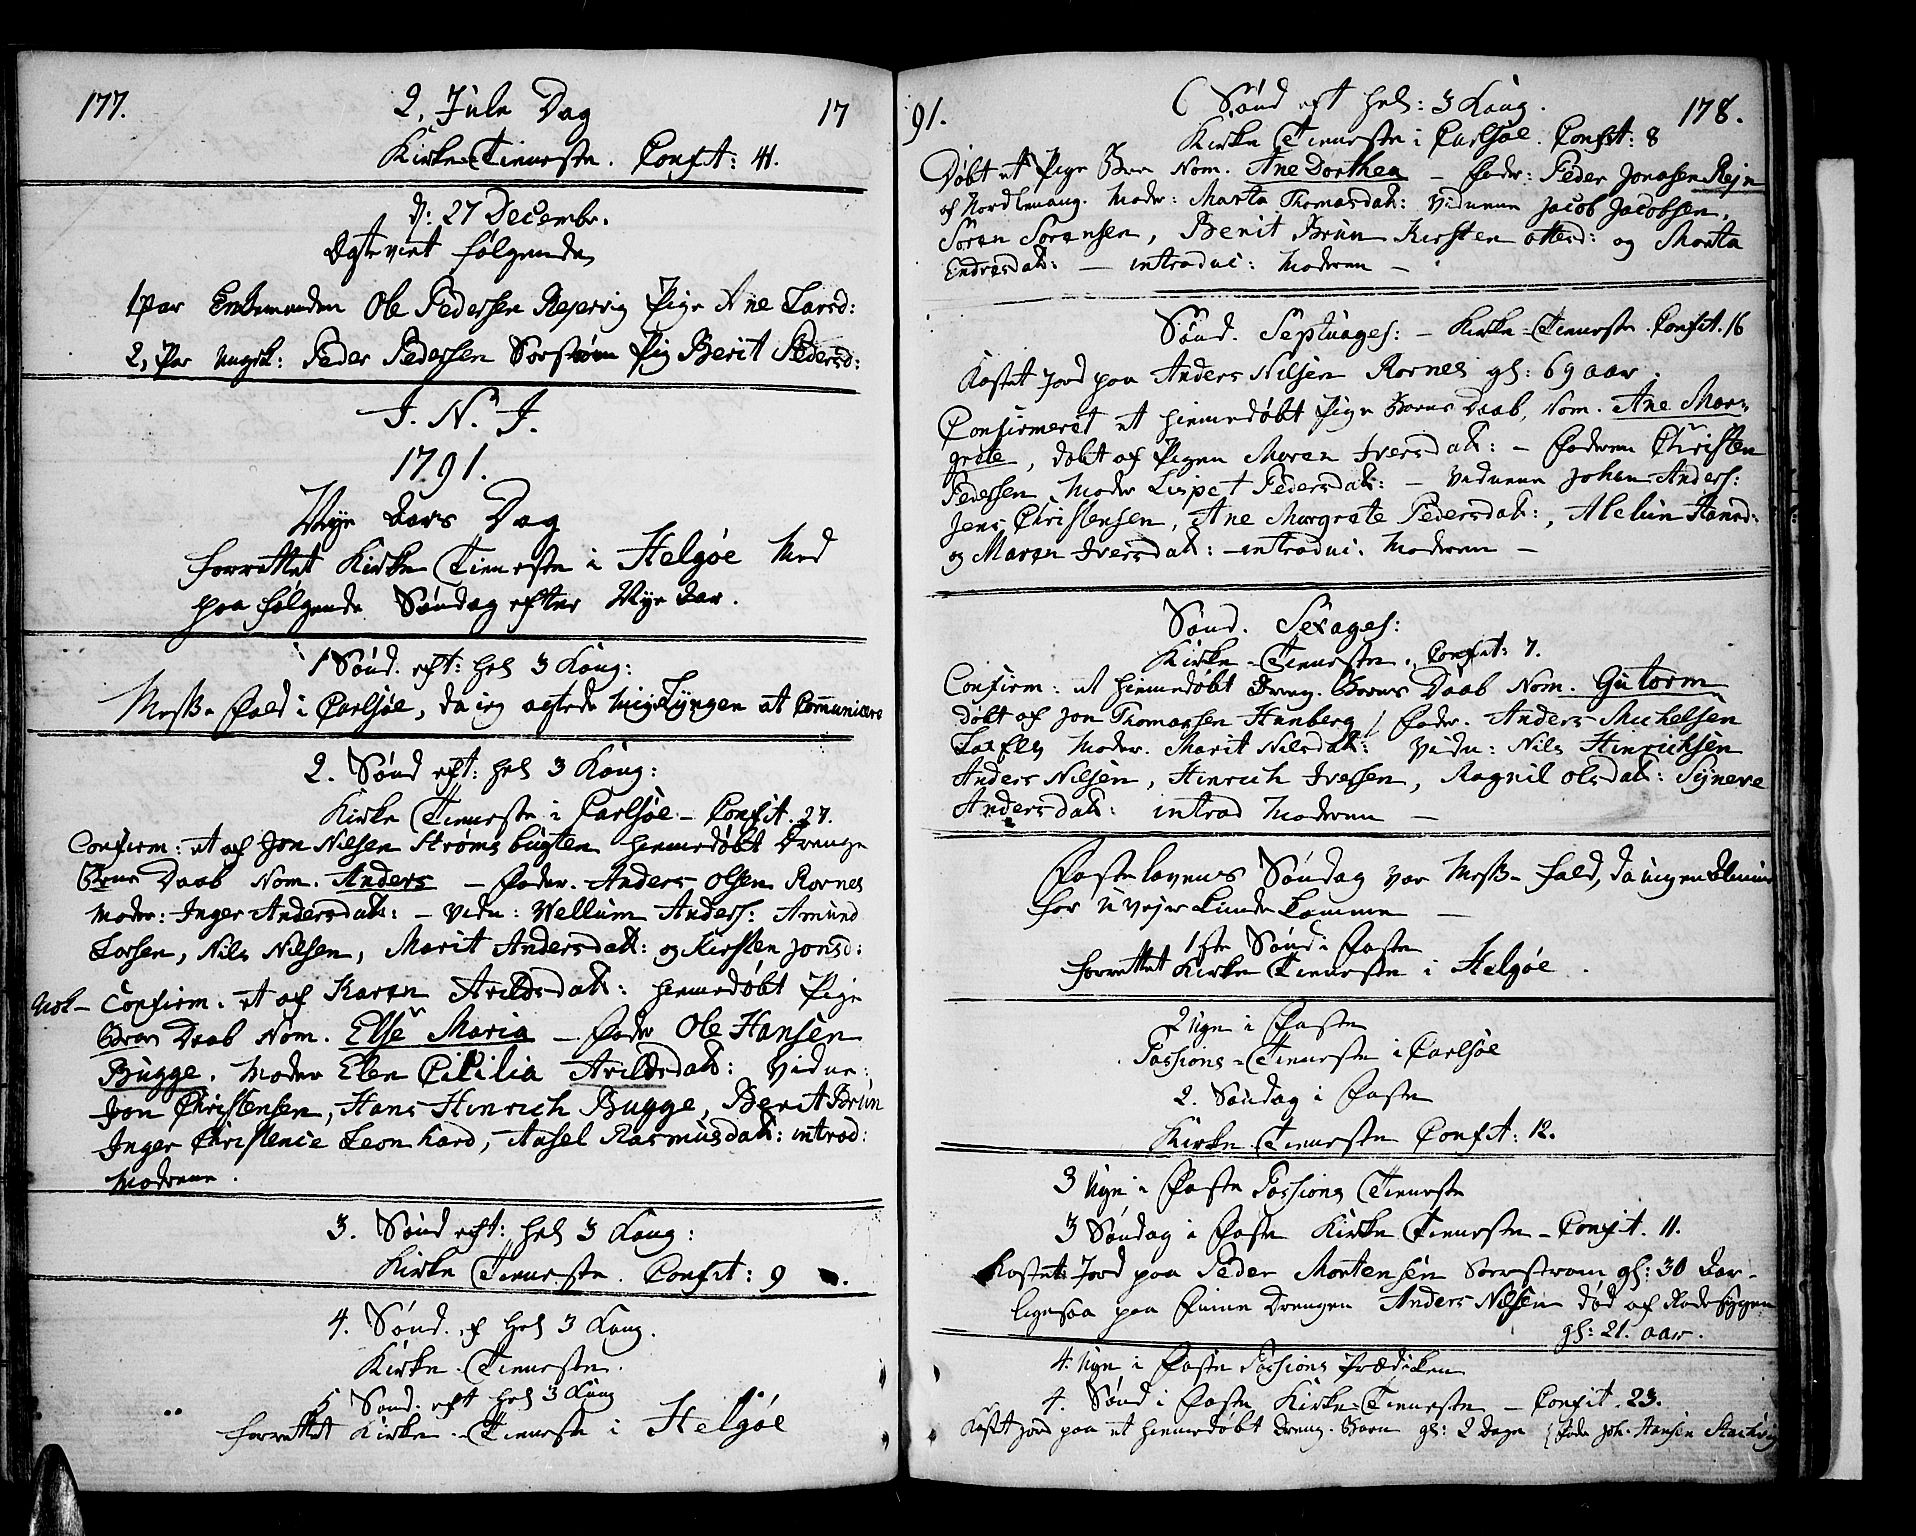 177.
2. Jule Dag
17
Kirke-Tieneste. Confit: 41.
d: 27 Decembr.
Egteviet følgende
1 Par Enkemanden Ole Pedersen Rejervig Pige Ane Larsd:
2, Par Ungk: Peder Pedersen Sorstrøm Pig Berit Pedersd:
J. N. J.
1791.
Nye Aars Dag
forrettet Kirke Tieneste i Helgøe Med
paa følgende Søndag efter Nye Aar.
1 Sønd. eft: hel 3 Kong:
Messe-Fald i Carlsøe, da jeg agtede mig Lyngen at Communicere
2. Sønd eft: hel 3 Kong:
Kirke Tieneste i Carlsøe - Confit. 27.
Confirm: et af Jon Nilsen Strømsbugten hiemedøbt Drenge
Barns Daab Nom. Anders - Fader. Anders Olsen Rornes
Moder: Inger Andersdatt: - Vidn: Wellum Anders: Amund
Larsen, Nils Nilsen, Marit Andersdatt: og Kirsten Jonsd:
Nok - Confirm. et af Karen Arildsdatt: hiemedøbt Pige
Barns Daab Nom. Else Maria - Fader Ole Hansen
Bugge. Moder Elen Cicilia Arildsdatt: Vidne:
Jon Christensen, Hans Hinrich Bugge, Berit Brun
Inger Christence Leonhard, Aasel Rasmusdatt: introd:
Moderen.
3. Sønd eft: hel 3 Kong:
Kirke Tieneste. Confit: 9.
4. Sønd. ef hel 3 Kong.
Kirke-Tieneste.
5 Sønd. eft hel 3 Kong
forrettet Kirke-Tieneste i Helgøe
91.
6 Sønd eft hel: 3 Kong.
178.
Kirke Tieneste i Carlsøe. Confit: 8
Døbt et Pige Barn Nom. Ane Dorthea - Fader: Peder Jonasen Rejn
af Nordlenang. Moder: Marta Thomasdatt: Vidnene Jacob Jacobsen,
Søren Sørensen, Berit Brun Kirsten Ottersd: og Marta
Endresdatt: - introduc: Moderen -
Sønd. Septuages: - Kirke-Tieneste. Confit. 16
Kastet Jord paa Anders Nilsen Rornes gl: 69 aar.
Confirmeret et hiemedøbt Pige Barns Daab, Nom. Ane Mar-
grete, døbt af Pigen Maren Iversdatt: - Faderen Christen
Pedersen Moder Lispet Pedersdatt: - Vidnene Johan Anders:
Jens Christensen, Ane Margrete Pedersdatt:, Alelun Hansd:
og Maren Iversdatt: - introduc. Moderen -
Sønd. Sexages:
Kirke-Tieneste. Confit: 7.
Confirm: et hiemedøbt Dreng. Barns Daab Nom. Gutorm
døbt af Jon Thomassen Hanberg / Fader. Anders Michelsen
Moder. Marit Nilsdatt: Vidn: Nils Hinrichsen
Anders Nilsen, Hinrich Iversen, Ragnil Olsdatt: Synere
Andersdatt: introd Moderen -
Fastelavens Søndag var Messe-fald, da ingen Almue
for Uvejr kunde komme -
1ste Sønd: i Faste
forrettet Kirke Tieneste i Helgøe.
2 Uge i Faste
Passions-Tieneste i Carlsøe
2. Søndag i Faste
Kirke Tieneste Confit: 12.
3 Uge i Faste Passions Tieneste
3 Søndag i Faste Kirke Tieneste - Confit. 11.
Kastet Jord paa Peder Mortensen Sorstrøm gl: 30 Aar-
ligesaa paa Finne Drengen Anders Nilsen død af Radesygen
gl: 21. aar.
4. Uge i Faste Passions Prædiken
4. Sønd i Faste Kirke-Tieneste - Confit. 23.
Kast Jord paa et hiemedøbt Dreng. Barn gl: 2 Dage (Fader Joh. Hansen